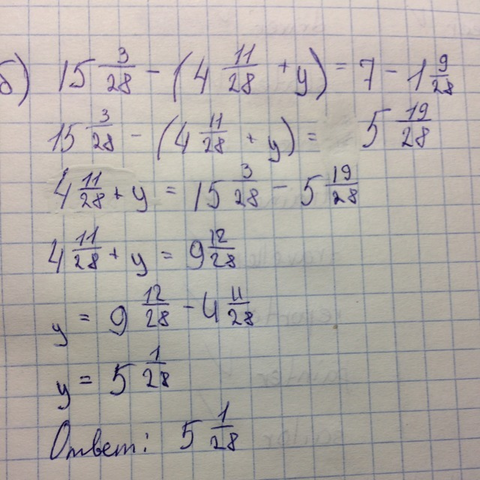 б) 15 3/28 - (4 11/28 + y) = 7 - 1 9/28
15 3/28 - (4 11/28 + y) = 5 19/28
4 11/28 + y = 15 3/28 - 5 19/28
4 11/28 + y = 9 12/28
y = 9 12/28 - 4 11/28
y = 5 1/28
Ответ: 5 1/28